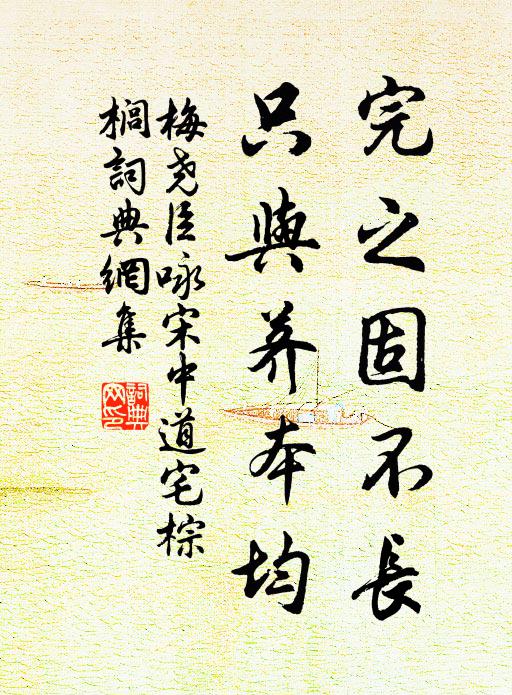 完之固不長
只與养本均
梅尧臣咏宋中道宅棕
榈詞典網集
詞典
网印